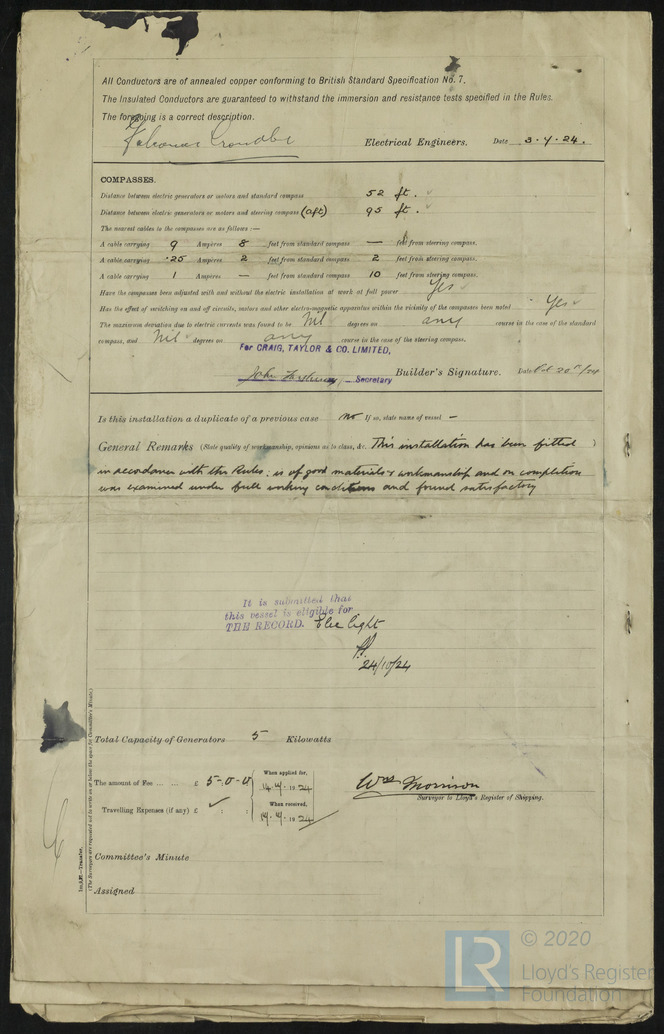 All Conductors are of annealed copper conforming to British Standard Specification No. 7.
The Insulated Conductors are guaranteed to withstand the immersion and resistance tests specified in the Rules.
The foregoing is a correct description.
Electrical Engineers. Date 3.4.24.
COMPASSES.
Distance between electric generators or motors and standard compass 52 ft.
Distance between electric generators or motors and steering compass (aft) 95 ft.
The nearest cables to the compasses are as follows:—
A cable carrying 9 Ampères 8 feet from standard compass — feet from steering compass.
A cable carrying .25 Ampères 2 feet from standard compass 2 feet from steering compass.
A cable carrying 1 Ampères — feet from standard compass 10 feet from steering compass.
Have the compasses been adjusted with and without the electric installation at work at full power Yes
Has the effect of switching on and off circuits, motors and other electro-magnetic apparatus within the vicinity of the compasses been noted Yes
The maximum deviation due to electric currents was found to be Nil degrees on any course in the case of the standard
compass, and Nil degrees on any course in the case of the steering compass.
For CRAIG, TAYLOR & CO. LIMITED,
John Secretary Builder's Signature. Date
Is this installation a duplicate of a previous case no If so, state name of vessel —
General Remarks (State quality of workmanship, opinions as to class, &c. This installation has been fitted )
in accordance with the Rules; is of good materials & workmanship and on completion
was examined under full working conditions and found satisfactory
It is submitted that
this vessel is eligible for
THE RECORD. Elec light
24/10/24
Total Capacity of Generators 5 Kilowatts
The amount of Fee ... ... £ 5 : 0 : 0 When applied for, 14.4.1924
Travelling Expenses (if any) £ : : When received, 19 24
Wm Morrison
Surveyor to Lloyd's Register of Shipping.
Committee's Minute
Assigned
(The Surveyors are requested not to write on or below the space for Committee's Minute.)
© 2020
LR
Lloyd's Register
Foundation